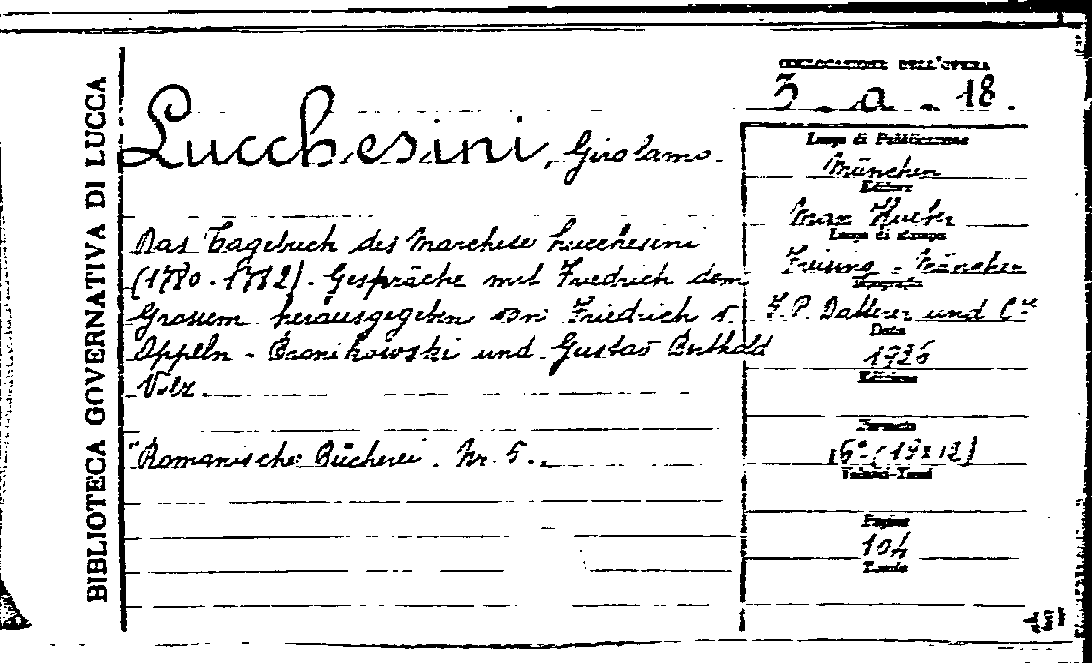 BIBLIOTECA GOVERNATIVA DI LUCCA
COLLOCAZIONE DELL'OPERA
3 - a - 18.
Lucchesini, Girolamo.
Das Tagebuch des Marchese Lucchesini
(1780-1782). Gespräche mit Friedrich dem
Grossem herausgegeben von Friedrich v.
Oppeln - Bronikowski und Gustav Berthold
Volz.
"Romanische Bücherei. Nr. 5.
Luogo di Pubblicazione
München
Editore
Max Hueber
Luogo di stampa
Freising - München
Tipografia
F. P. Datterer und Cie
Data
1926
Edizione
Formato
16° (19x12)
Volumi-Tomi
Pagine
104
Tavole